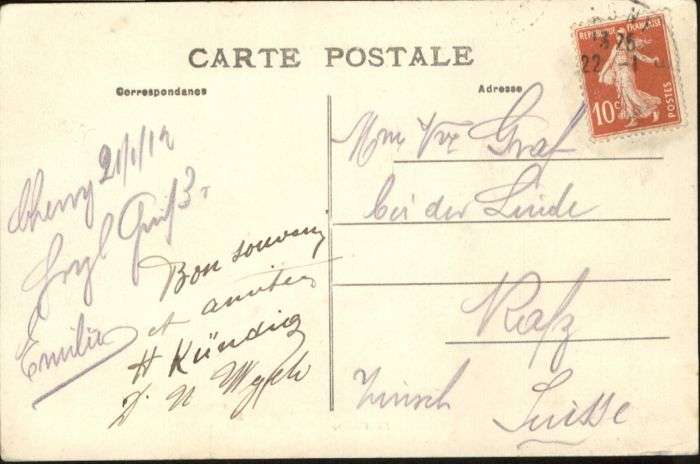 CARTE POSTALE
Correspondance
Adresse
REPUBLIQUE FRANÇAISE
10c
POSTES
22 - 1
Cherry 21/1/12
Emilie
Bon souvenir
et amitiés
H Kündig
Graf
bei der Linde
Rafz
Suisse